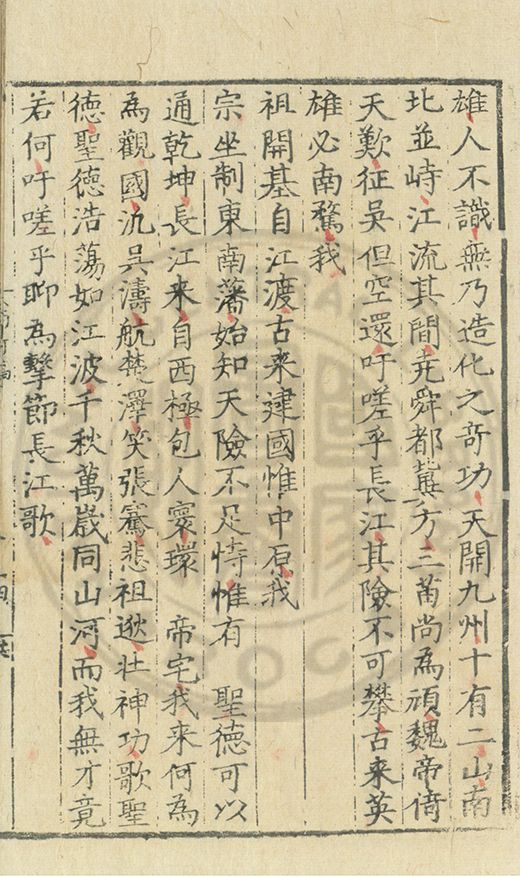 雄人不識無乃造化之奇功天開九州十有二山南
北並峙江流其間堯舜都冀方三苗尚為頑魏帝倚
天歎征吳但空還吁嗟乎長江其險不可攀古来英
雄必南騖我
祖開基自江渡古来建國惟中原我
宗坐制東南藩始知天險不足恃惟有 聖德可以
通乾坤長江来自西極包人寰環 帝宅我来何為
為觀國汎吳濤航楚澤笑張騫悲祖逖壮神功歌聖
德聖德浩蕩如江波千秋萬歲同山河而我無才竟
若何吁嗟乎聊為擊節長江歌